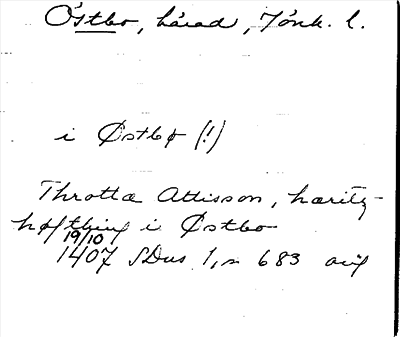 Östbo, härad, Jönk. l.
i Østbø (!)
Throttæ Attisson, hæritz-
høfthing i Østbo
19/10
1407 SDns 1, n 683 orig